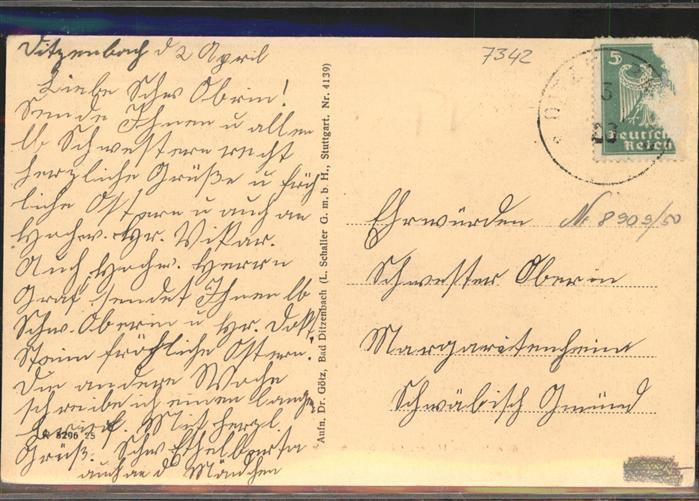 Ditzenbach d 2 April
Liebe Schw Obrin!
Sende Ihnen u allen
lb Schwestern recht
herzliche Grüße u fröh
liche Ostern u auch an
Hochw. Hr. Vikar.
Auch Hochw. Herrn
Graf sendet Ihnen lb
Schw. Oberin u Hr.
fröhliche Ostern.
Die andere Woche
schreibe ich einen lang
Brief. Mit herzl.
Grüß. Schw Ethelberta
auch an d Mädchen
8296 25
Aufn. Dr. Götz, Bad Ditzenbach (L. Schaller G. m. b. H., Stuttgart. Nr. 4139)
7342
5
Deutsch
Reich
Ehrwürden
Nr 8909/50
Schwester Oberin
Margaritenheim
Schwäbisch Gmünd